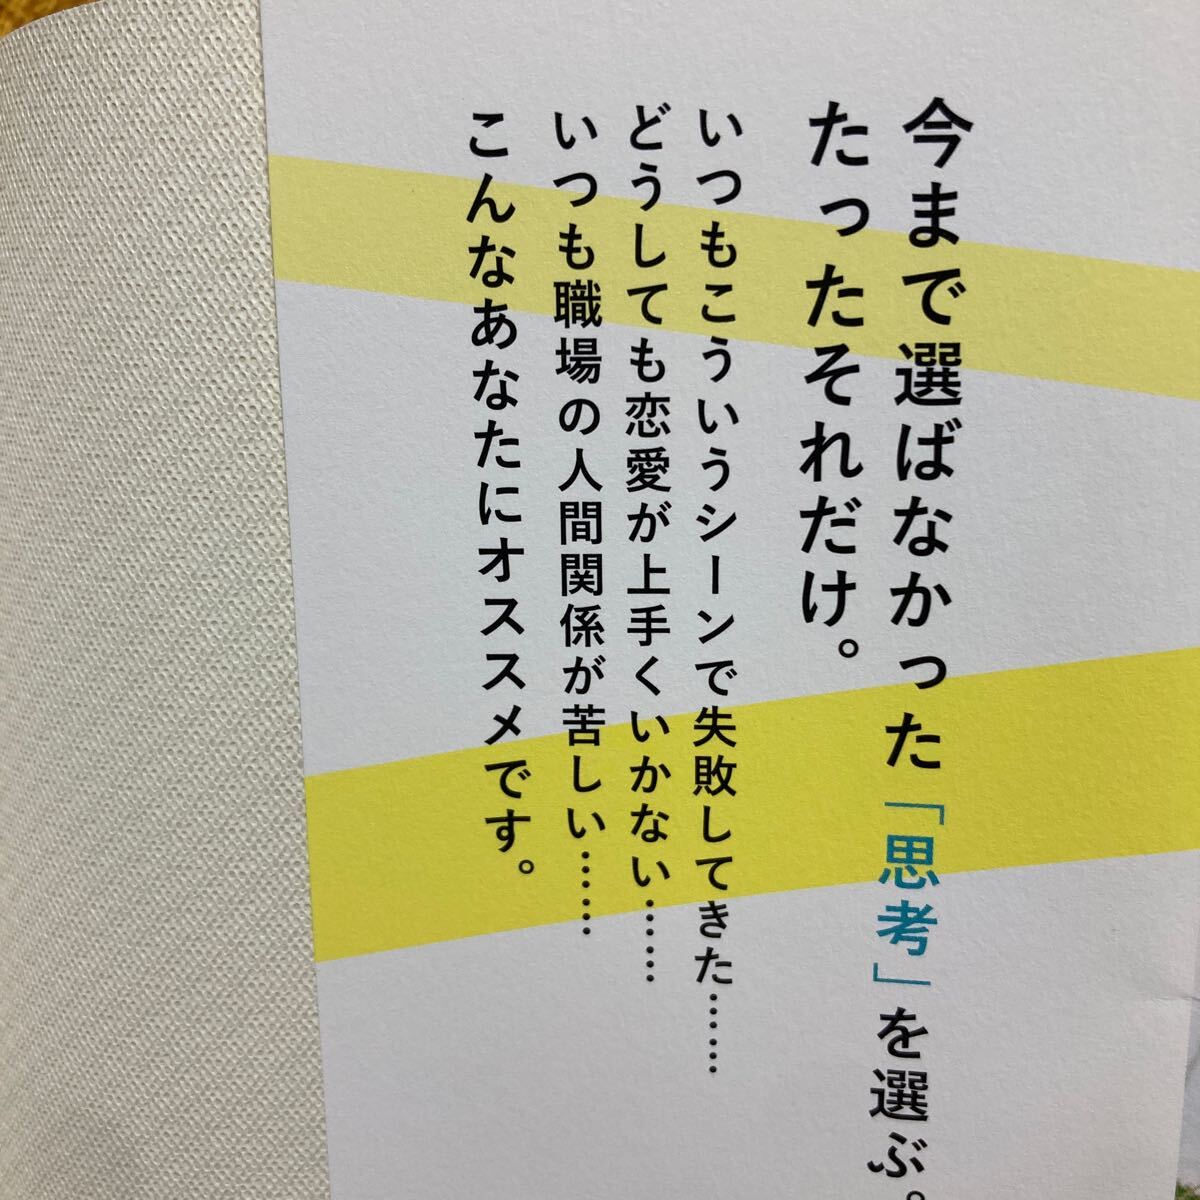 今まで選ばなかった「思考」を選ぶ。
たったそれだけ。
いつもこういうシーンで失敗してきた……
どうしても恋愛が上手くいかない……
いつも職場の人間関係が苦しい……
こんなあなたにオススメです。